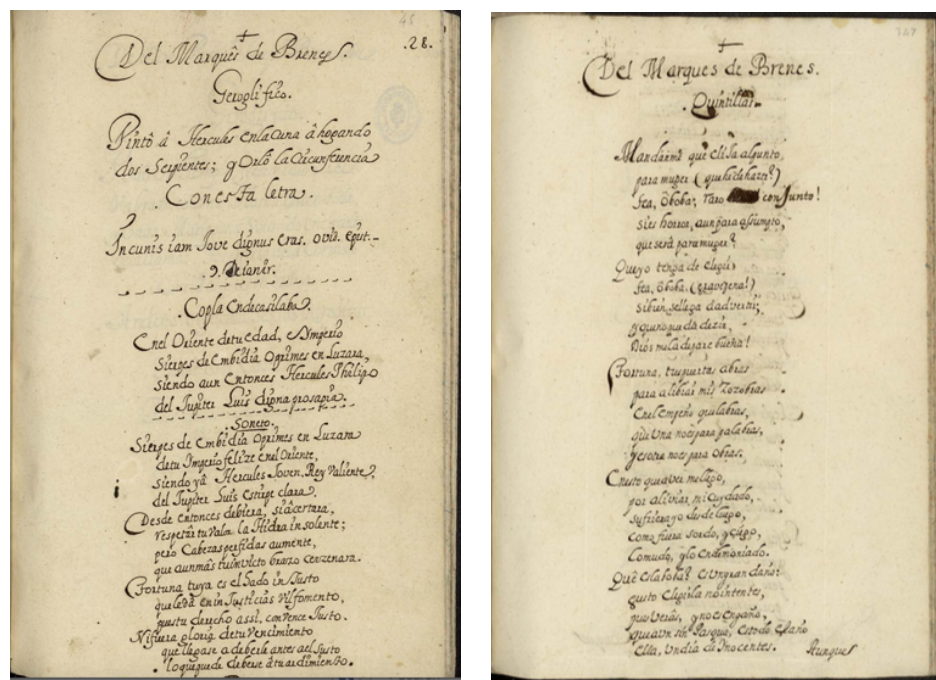 45
.28.
Del Marquès de Brenes.
Geroglifico.
Pintò à Hercules en la Cuna ahogando
dos Serpientes; y Orlò la Circunferencia
Con esta letra.
In cunis iam Jove dignus eras. Ovid. Epist.
9. Deianir.
Copla Endecasilaba.
En el Oriente de tu edad, è Ymperio
Sierpes de Embidia Oprimes en Luzara,
siendo aun Entonces Hercules Philipo
del Jupiter Luis digna prosapia.
Soneto.
Sierpes de Embidia Oprimes en Luzara
de tu Imperio felize en el Oriente,
siendo yà Hercules Joven, Rey Valiente,
del Jupiter Luis estirpe clara.
Desde entonces debiera, si acertara,
respetar tu valor la Hidra insolente;
pero Cabezas perfidas aumente,
que aun mas tu invicto brazo cercenara.
Fortuna tuya es el hado injusto
que le dà en injusticias vil fomento,
pues tu derecho assi, convence Justo.
Ni fuera gloria de tu vencimiento
que llegase a deberle antes a el susto
lo que puede deberse à tu ardimiento.
347
Del Marques de Brenes.
Quintillas.
Mandanme que elija al punto,
para muger (que he de hazer?)
fea, ò boba; raro conjunto!
si es horror, aun para assumpto,
que serà para muger?
Que yo tenga de elegir
fea, ò boba, (grave pena!)
si bien, se llega a advertir,
y quiero que dà dezir,
Dios me la depare buena!
Fortuna, tus puertas abras
para aliviar mis zozobras
en el empeño que labras,
que una no es para palabras,
y esotra no es para obras.
En esto que a ver me llego,
por aliviar mi cuydado,
sufriera yo desde luego,
como fuera sordo, y ciego,
lo mudo, y lo endemoniado.
Què es la boba? es un gran daño:
gusto elegirla no intentes,
pues veràs, y no es engaño,
que aun sin Pasqua, es todo el año
ella, un dia de Inocentes.
Aunque